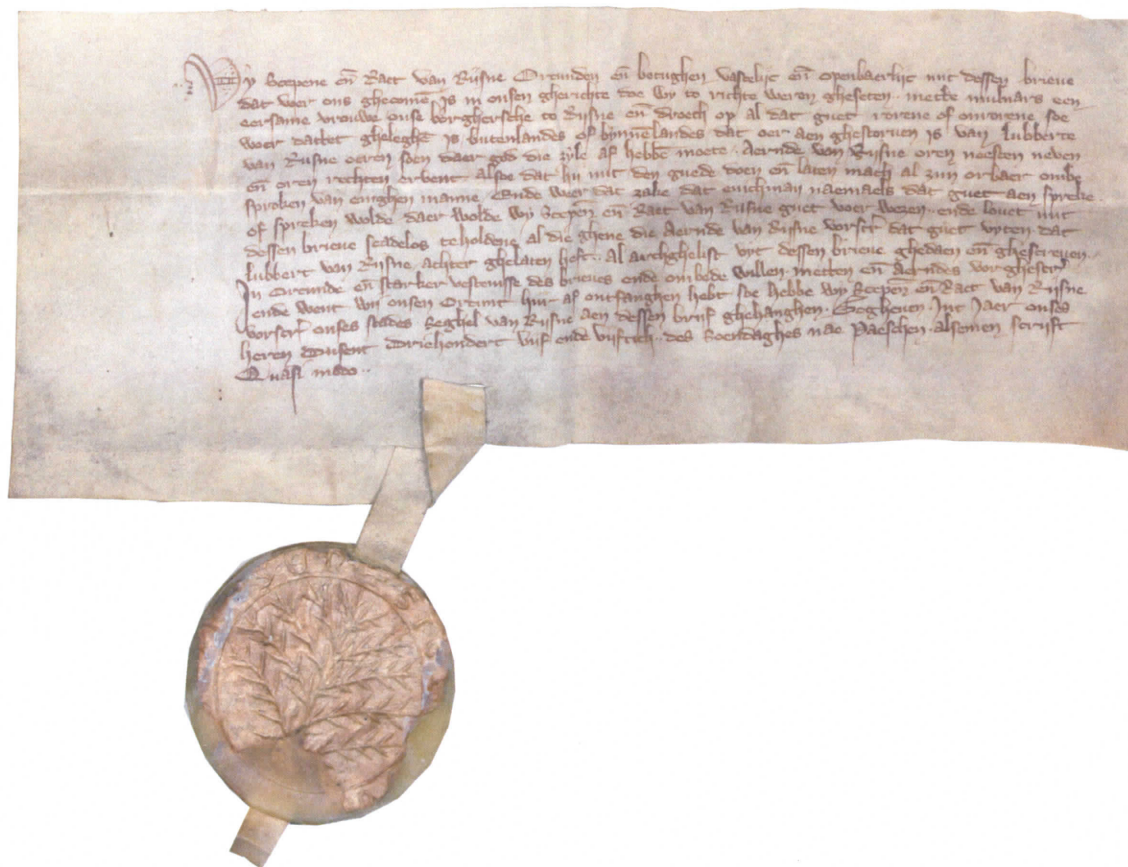 Wy Scepene en̄ Raet van Rijsne Orcunden en̄ betughen vastelijc en̄ openbaerlijc mit dessen brieue
dat voer ons ghecomē is in onsen gherichte doe wy to richte weren gheseten mette mulnars een
eersame vrouwe onse borghersche to Rijsne en̄ droech op al dat guet rorene of onrorene soe
woer dattet gheleghē is butenlandes of bynnēlandes dat oer aen ghestoruen is van lubberte
van Rijsne oeren soen daer god die zyle af hebbē moete Aernde van Rijsne oren neesten neven
en̄ oren rechten eruent alsoe dat hij mit den guede doen en̄ laten mach al zijn orbaer ombe
spreken van enighen manne Ende weer dat zake dat enichman naemaels dat guet aen spreke
of spreken wolde daer wolde wij Scepen̄ en̄ Raet van Rijsne guet voer wezen ende louet mit
dessen brieue scadelos te holdene al die ghene die Aernde van Rijsne vorscr̄ dat guet vyten dat
lubbert van Rijsne achter ghelaten heft Al archghelist vyt dessen brieue ghedaen en̄ ghescreuen
In Orcunde en̄ starker vestenisse des brieues ende om bede willen metten en̄ Aerndes vorghescr̄
ende went wij onsen Orcunt hijr af ontfanghen hebt soe hebbe wij Scepen̄ en̄ Raet van Rijsne
vorscr̄ onses stades Seghel van Rijsne aen dessen brijf ghehanghen Gegheuen Int Jaer onses
heren Dusent Driehondert vijf ende vijftich des Soendaghes nae Paeschen alsemen scrijft
Quasi modo